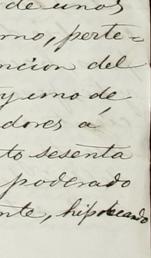 de unos
erno, perte=
ncion del
y uno de
dores á
to sesenta
poderado
nte, hipotecando